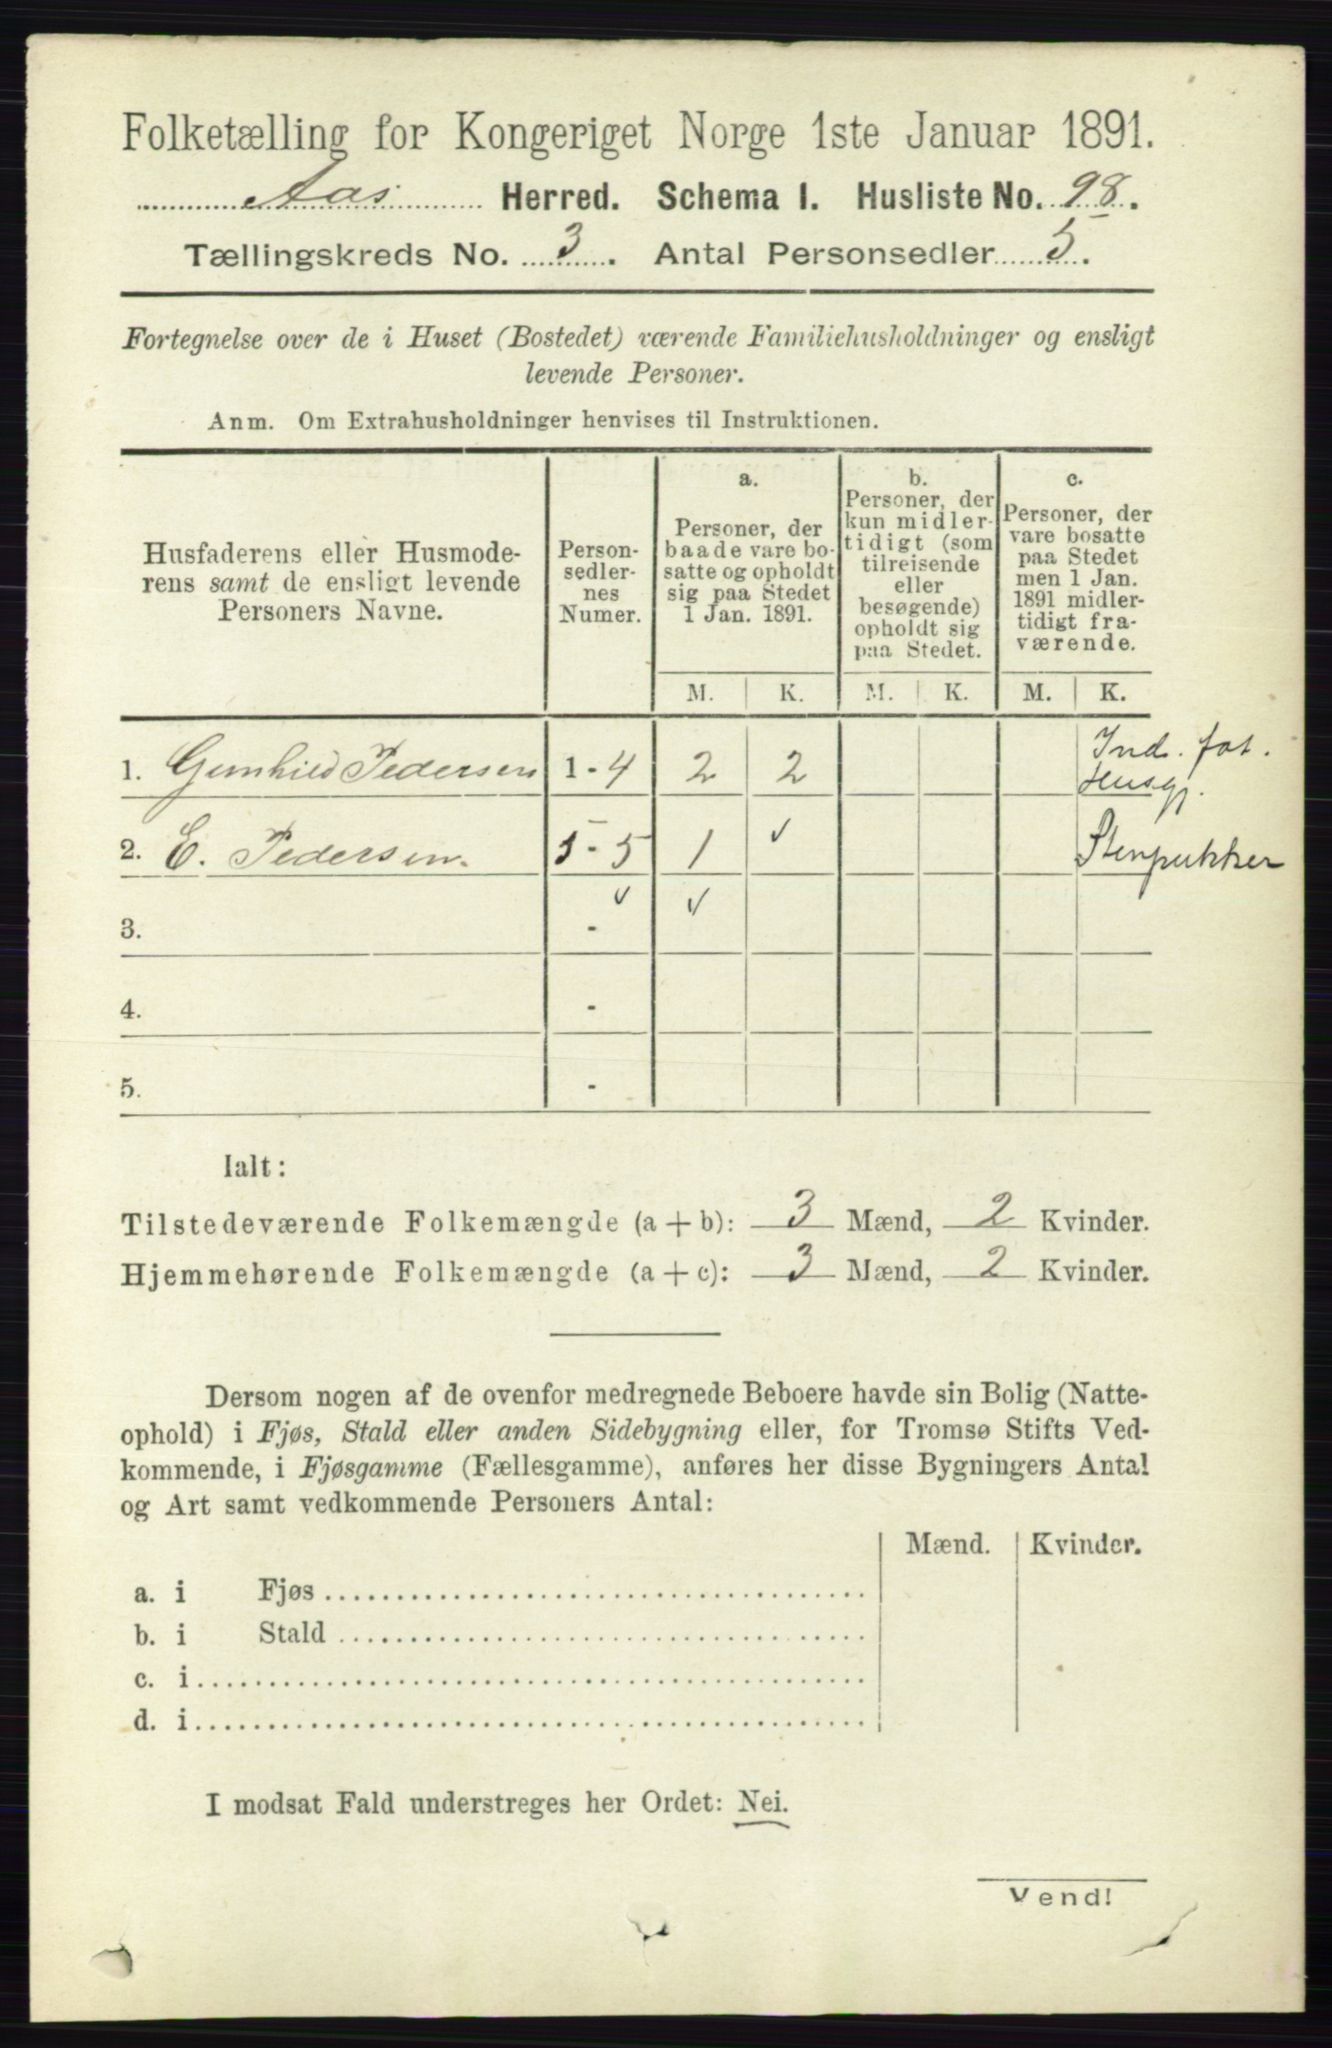 Folketælling for Kongeriget Norge 1ste Januar 1891.
Aas Herred. Schema I. Husliste No. 98.
Tællingskreds No. 3. Antal Personsedler 5.
Fortegnelse over de i Huset (Bostedet) værende Familiehusholdninger og ensligt
levende Personer.
Anm. Om Extrahusholdninger henvises til Instruktionen.
Husfaderens eller Husmode-
rens samt de ensligt levende
Personers Navne.
Person-
sedler-
nes
Numer.
a.
Personer, der
baade vare bo-
satte og opholdt
sig paa Stedet
1 Jan. 1891.
b.
Personer, der
kun midler-
tidigt (som
tilreisende
eller
besøgende)
opholdt sig
paa Stedet.
c.
Personer, der
vare bosatte
paa Stedet
men 1 Jan.
1891 midler-
tidigt fra-
værende.
M. K. M. K. M. K.
1. Gunhild Pedersen 1-4 2 2 Ind. fat.
Husgj.
2. E. Pedersen. 5-5 1 ✓ Stenpukker
✓ ✓
3. -
4. -
5. -
Ialt:
Tilstedeværende Folkemængde (a + b): 3 Mænd, 2 Kvinder.
Hjemmehørende Folkemængde (a + c): 3 Mænd, 2 Kvinder.
Dersom nogen af de ovenfor medregnede Beboere havde sin Bolig (Natte-
ophold) i Fjøs, Stald eller anden Sidebygning eller, for Tromsø Stifts Ved-
kommende, i Fjøsgamme (Fællesgamme), anføres her disse Bygningers Antal
og Art samt vedkommende Personers Antal:
Mænd. Kvinder.
a. i Fjøs
b. i Stald
c. i
d. i
I modsat Fald understreges her Ordet: Nei.
Vend!